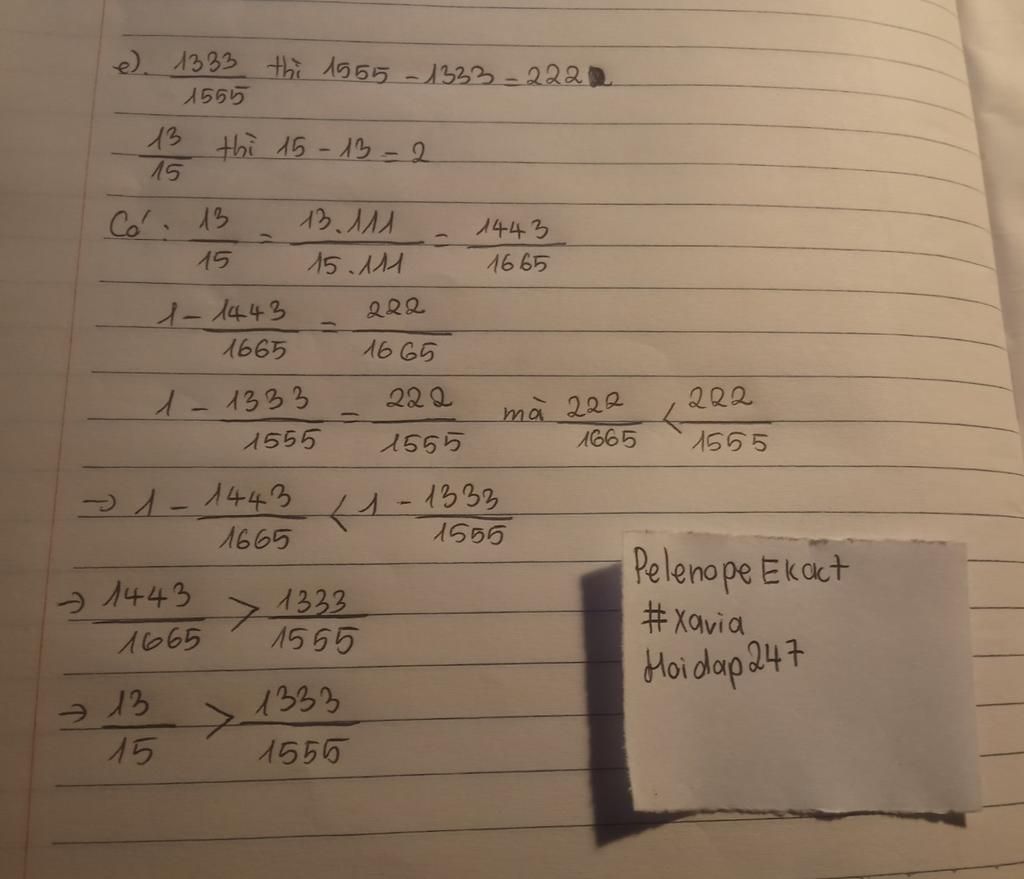 e). 1333/1555 thì 1555 - 1333 = 222
13/15 thì 15 - 13 = 2
Có: 13/15 = 13.111/15.111 = 1443/1665
1 - 1443/1665 = 222/1665
1 - 1333/1555 = 222/1555 mà 222/1665 < 222/1555
→ 1 - 1443/1665 < 1 - 1333/1555
→ 1443/1665 > 1333/1555
→ 13/15 > 1333/1555
Pelenope Ekact
#xavia
Hoidap247